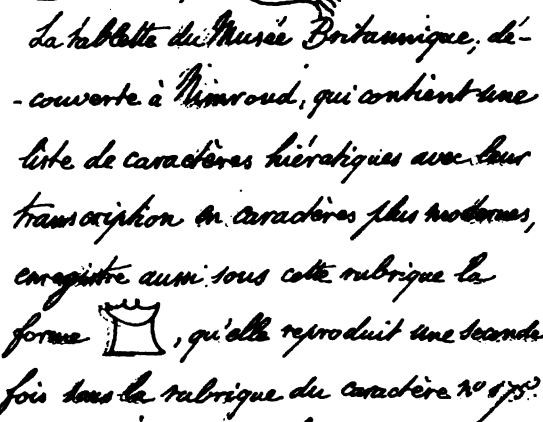 La tablette du Musée Britannique, dé-
-couverte à Nimroud, qui contient une
liste de caractères hiératiques avec leur
transcription en caractères plus modernes,
enregistre aussi sous cette rubrique la
forme , qu'elle reproduit une seconde
fois sous la rubrique du caractère nº 175.